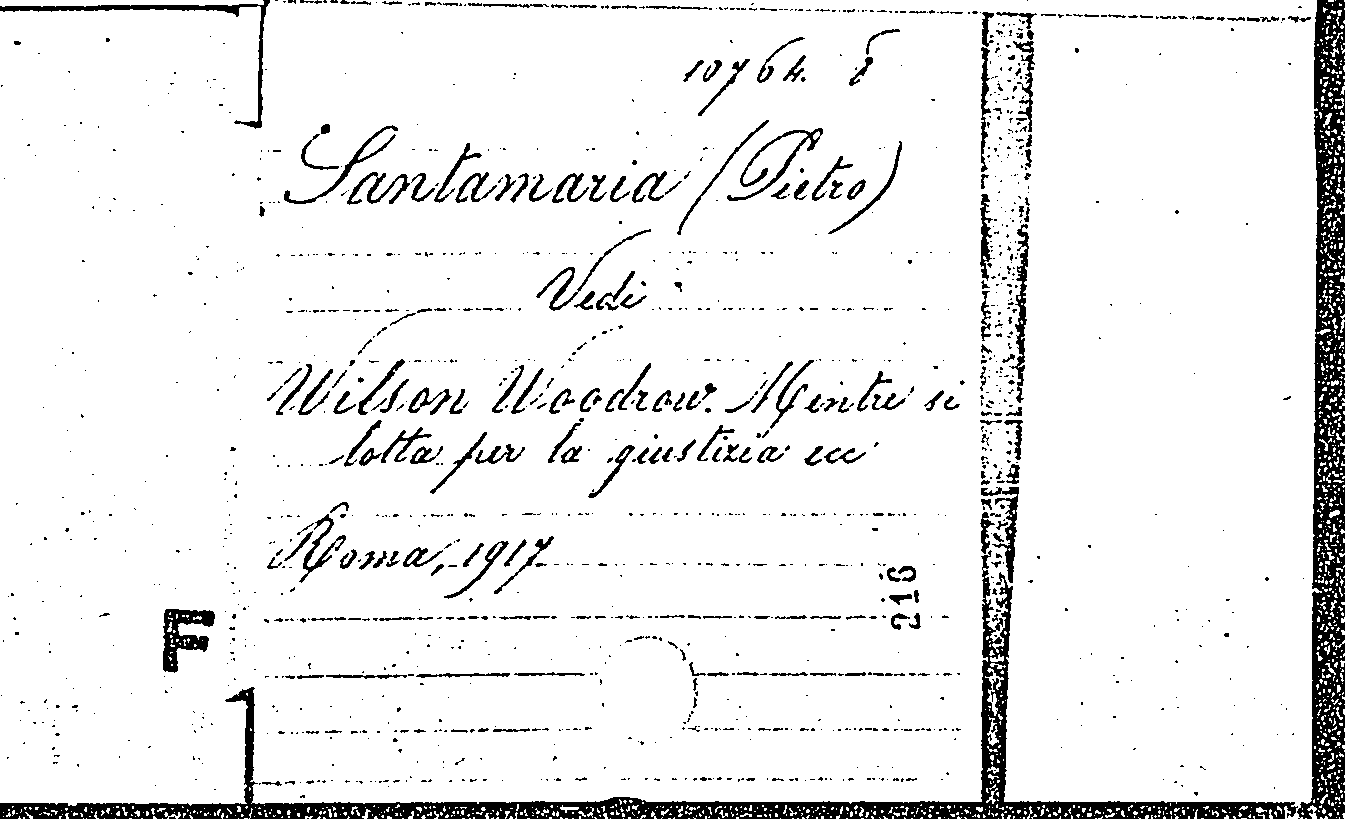 10764. 8
Santamaria (Pietro)
Vedi
Wilson Woodrow. Mentre si
lotta per la giustizia ecc
Roma, 1917
216
F